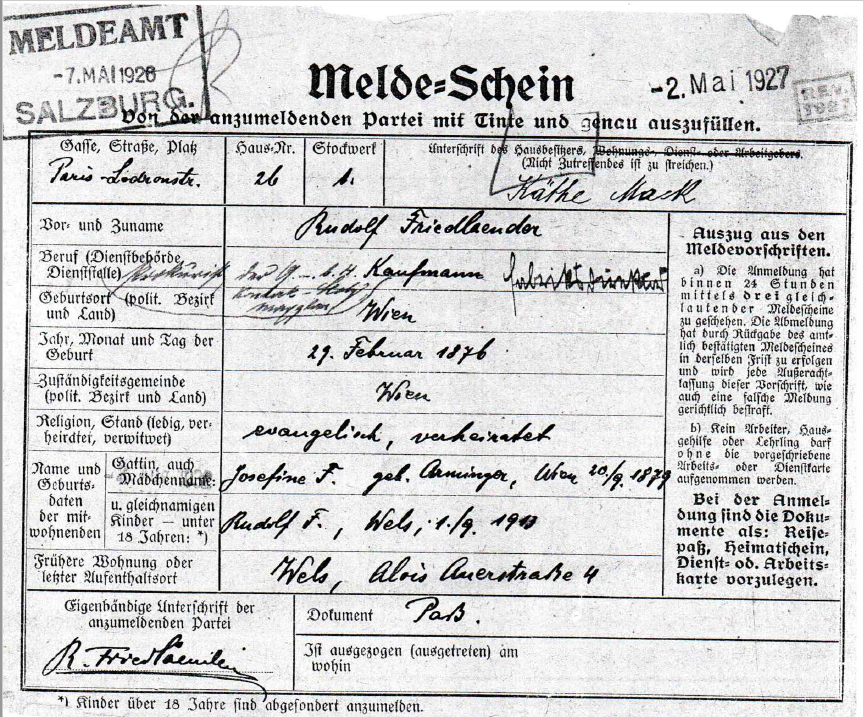 MELDEAMT
-7. MAI 1928
SALZBURG.
Melde-Schein
-2. Mai 1927
Von der anzumeldenden Partei mit Tinte und genau auszufüllen.
Gasse, Straße, Platz
Paris-Lodronstr.
Haus-Nr.
26
Stockwerk
1.
Unterschrift des Hausbesitzers, Wohnungs-, Dienst- oder Arbeitgebers.
(Nicht Zutreffendes ist zu streichen.)
Käthe Mack
Vor- und Zuname
Rudolf Friedlaender
Beruf (Dienstbehörde,
Dienststelle)
Prokurist der
Kaufmann Fabriksdirektor
Geburtsort (polit. Bezirk
und Land)
Wien
Jahr, Monat und Tag der
Geburt
29. Februar 1876
Zuständigkeitsgemeinde
(polit. Bezirk und Land)
Wien
Religion, Stand (ledig, ver-
heiratet, verwitwet)
evangelisch, verheiratet
Name und
Geburts-
daten
der mit-
wohnenden
Gattin, auch
Mädchenname:
Josefine F. geb. Arminger, Wien 20/9. 1879
u. gleichnamigen
Kinder — unter
18 Jahren: *)
Rudolf F., Wels, 1./9. 1913
Frühere Wohnung oder
letzter Aufenthaltsort
Wels, Alois Auerstraße 4
Auszug aus den
Meldevorschriften.
a) Die Anmeldung hat
binnen 24 Stunden
mittels drei gleich-
lautender Meldescheine
zu geschehen. Die Abmeldung
hat durch Rückgabe des amt-
lich bestätigten Meldescheines
in derselben Frist zu erfolgen
und wird jede Außeracht-
lassung dieser Vorschrift, wie
auch eine falsche Meldung
gerichtlich bestraft.
b) Kein Arbeiter, Haus-
gehilfe oder Lehrling darf
ohne die vorgeschriebene
Arbeits- oder Dienstkarte
aufgenommen werden.
Bei der Anmel-
dung sind die Doku-
mente als: Reise-
paß, Heimatschein,
Dienst- od. Arbeits-
karte vorzulegen.
Eigenhändige Unterschrift der
anzumeldenden Partei
R. Friedlaender
Dokument Paß.
Ist ausgezogen (ausgetreten) am
wohin
*) Kinder über 18 Jahre sind abgesondert anzumelden.